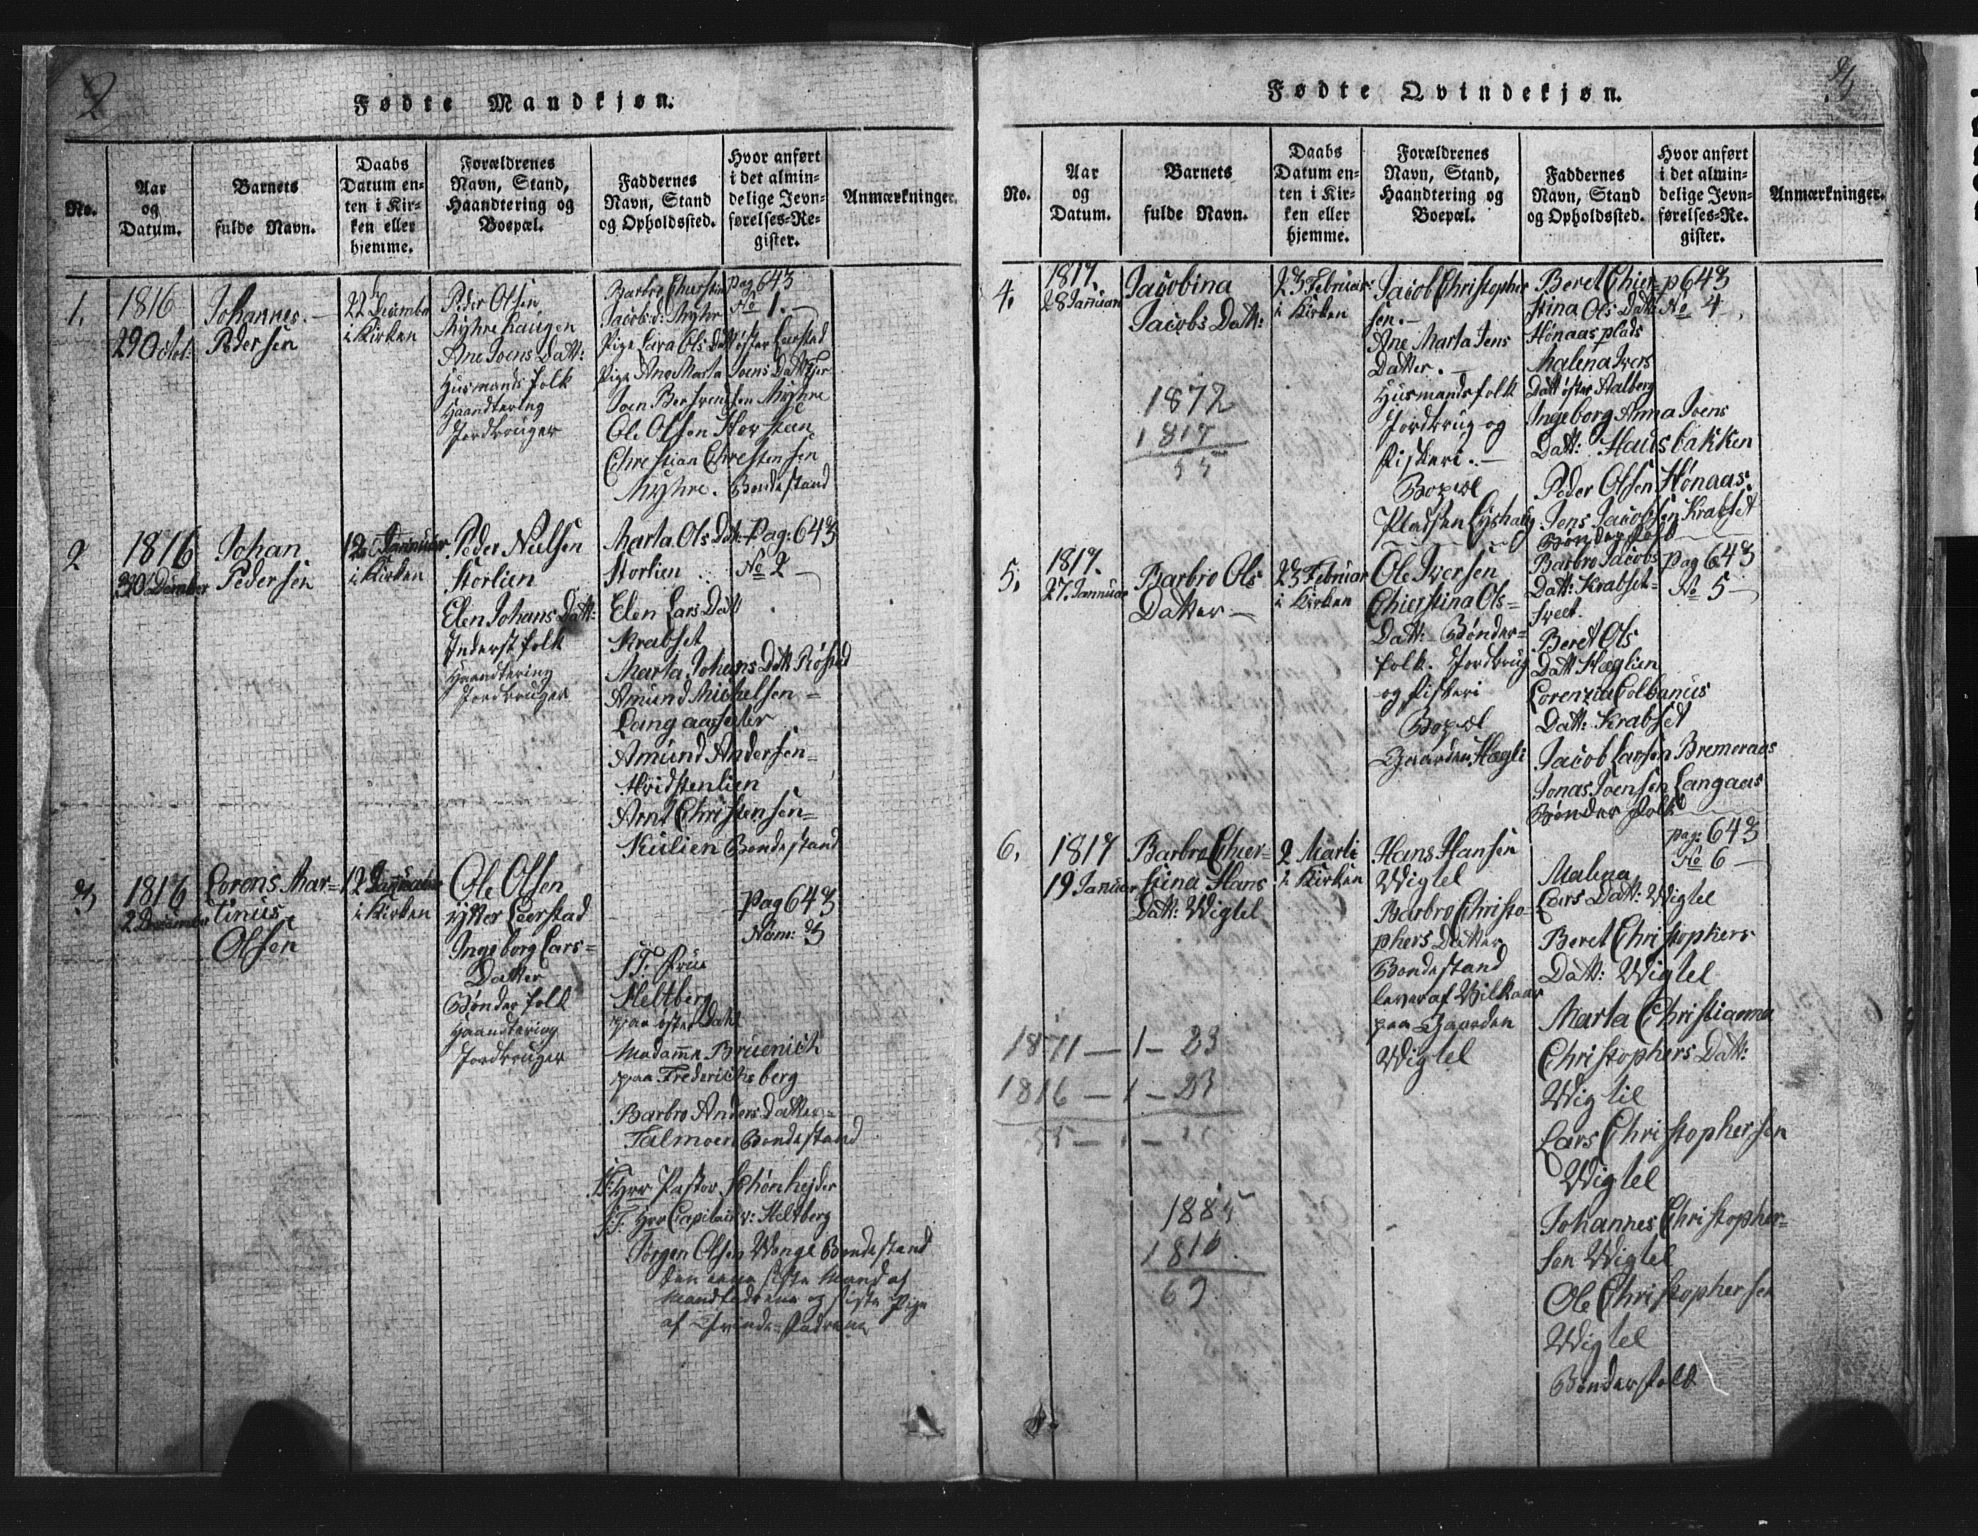 2
Fødte Mandkjøn.
No.
Aar
og
Datum.
Barnets
fulde Navn.
Daabs
Datum en-
ten i Kir-
ken eller
hjemme.
Forældrenes
Navn, Stand,
Haandtering og
Boepæl.
Faddernes
Navn, Stand
og Opholdssted.
Hvor anført
i det almin-
delige Jevn-
førelses-Re-
gister.
Anmærkninger.
1.
1816
29 Octob:
Johannes
Pedersen
22 Decembr
i Kirken
Peder Olsen
Myhrehaugen
Ane Joens Datt:
Husmands folk
Haandtering
Jordbruger
Barbro Chierstina
Jacobsd: Myhr
Pige Lara Ols Datt øster Leerstad
Pige Ane Marta Joens Datt
Joen Berhrendsen Myhre
Ole Olsen Horsteen
Christian Christensen
Myhre. Bondestand
pag 643
No 1.
2
1816
30 December
Johan
Pedersen
12 Januar
i Kirken
Peder Nielsen
Storlien
Elen Johans Datt:
Inderst folk
Haandtering
Jordbruger
Marta Ols Dat:
Storlien
Elen Lars Datt
Krabset
Marta Johans Datt: Røstad
Amund Michelsen
Langaassæter
Amund Andersen
Hvidstenlien
Arnt Christensen
Kulien Bondestand
Pag: 643
No 2
3
1816
2 December
Lorens Mar-
tinus
Olsen
12 Januar
i Kirken
Ole Olsen
ytter Leerstad
Ingeborg Lars-
Datter
Bønder folk
Haandtering
Jordbruger
Pag 643
Num: 3
S.T. Frue
Heltberg
paa østed Dahl
Madamme Bruenich
paa Frederichsberg
Barbro Anders Datter
Talmoen Bondestand
S.T. Herr Pastor Schønhejder
S.T. Herr Capitain v: Heltberg
Jørgen Olsen Wenge Bondestand
3
Fødte Qvindekjøn.
No.
Aar
og
Datum.
Barnets
fulde Navn.
Daabs
Datum en-
ten i Kir-
ken eller
hjemme.
Forældrenes
Navn, Stand,
Haandtering og
Boepæl.
Faddernes
Navn, Stand
og Opholdssted.
Hvor anført
i det almin-
delige Jevn-
førelses-Re-
gister.
Anmærkninger.
4.
1817.
28 Januar
Jacobina
Jacobs Datt:
23 Februar
i Kirken
Jacob Christopher
sen.
Ane Marta Jens
Datter.
Husmandsfolk
Jordbrug og
fiskeri.
Bopæl
Pladsen Lyshaug
Beret Chier-
stina Ols Datt:
Hønaas plads
Malena Ivers
Datt øster Aalberg
Ingeborg Anna Joens
Datt: Hausbakken
Peder Olsen Hønaas.
Jens Jacobsen Krabset
Bønder folk
p 643
No 4
1872
1817
55
5.
1817.
27. Januar
Barbro Ols
Datter
23 Februar
i Kirken
Ole Iversen
Chierstina Ols-
Datt: Bønder-
folk. Jordbrug
og fiskeri
Bopæl
Gaarden Hægli
Barbro Jacobs
Datt: Krabset-
tveet.
Beret Ols
Datt Hæglien
Lorenzia Colbanus
Datt: Krabset
Jacob Larsen Bremeraas
Jonas Joensen Langaas
Bønder folk
Pag 643
No 5
6.
1817
19 Januar
Barbro Chier-
stina Hans
Datt: Wigtel
2 Marti
i Kirken
Hans Hansen
Wigtel
Barbro Christo-
phers Datter
Bondestand
lever af Vilkaar
paa Gaarden
Wigtel
pag: 643
No 6
Malena
Lars Datt: Wigtel
Beret Christophers
Datt: Wigtel
Marta Christianna
Christophers Datt:
Wigtil
Lars Christophersen
Wigtel
Johannes Christopher-
sen Wigtel
Ole Christophersen
Wigtel
Bønderfolk
1871 — 1 — 23
1816 — 1 — 23
55
1885
1816
69